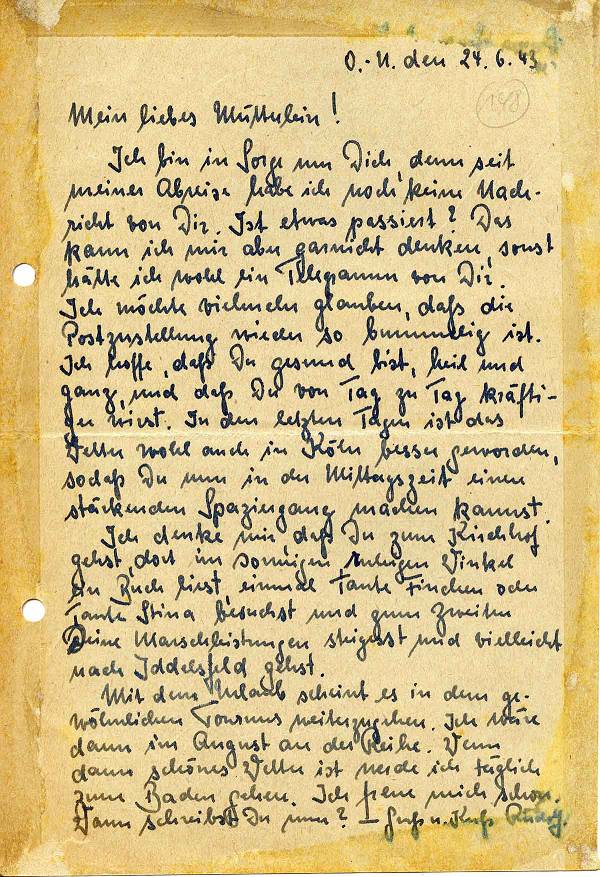 O.-U. den 24.6.43.
148
Mein liebes Mütterlein!
Ich bin in Sorge um Dich, denn seit
meiner Abreise habe ich noch keine Nach-
richt von Dir. Ist etwas passiert? Das
kann ich mir aber garnicht denken, sonst
hätte ich wohl ein Telegramm von Dir.
Ich möchte vielmehr glauben, daß die
Postzustellung wieder so bummelig ist.
Ich hoffe, daß Du gesund bist, heil und
ganz, und daß Du von Tag zu Tag kräfti-
ger wirst. In den letzten Tagen ist das
Wetter wohl auch in Köln besser geworden,
sodaß Du nun in der Mittagszeit einen
stärkenden Spaziergang machen kannst.
Ich denke mir, daß Du zum Kirchhof
gehst, dort im sonnigen ruhigen Winkel
ein Buch liest, einmal Tante Finchen oder
Tante Stina besuchst und zum zweiten
Deine Marschleistungen steigerst und vielleicht
nach Iddelsfeld gehst.
Mit dem Urlaub scheint es in dem ge-
wöhnlichen weiterzugehen. Ich wäre
dann im August an der Reihe. Wenn
dann schönes Wetter ist werde ich täglich
zum Baden gehen. Ich freue mich schon.
Wann schreibst Du nun? – Gruß u. Kuß Rudolf.